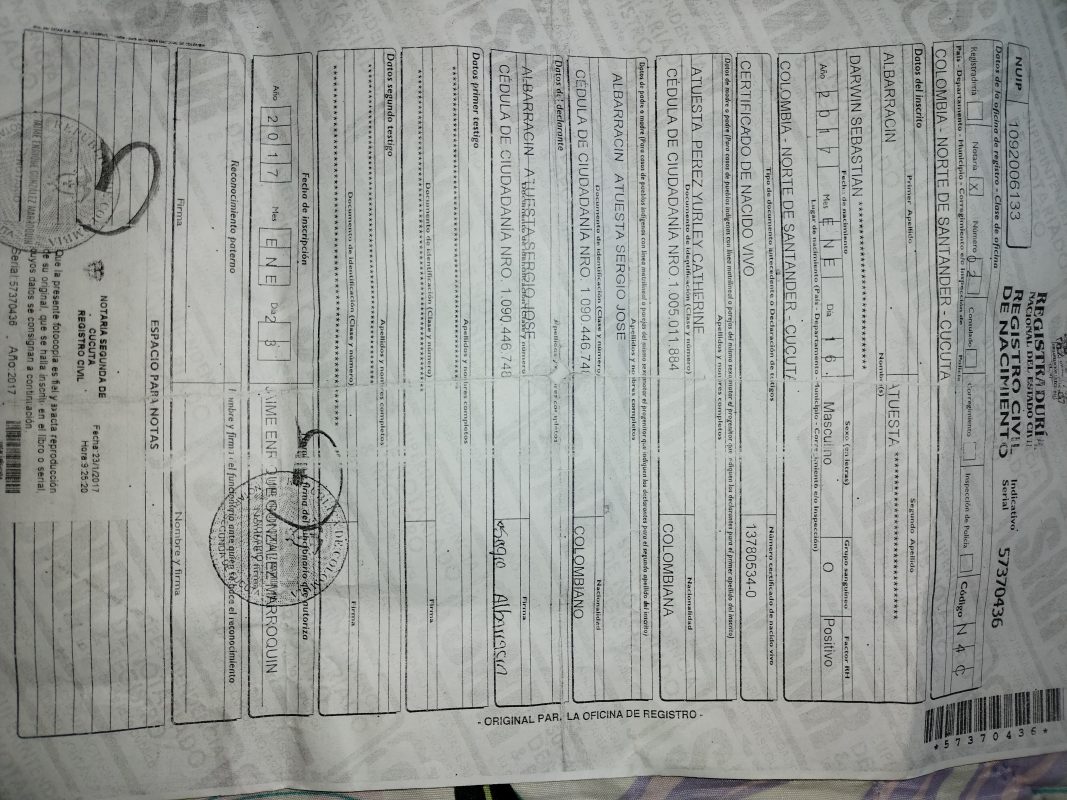 REGISTRADURÍ
NACIONAL DEL ESTADO CIVI
REGISTRO CIVIL
DE NACIMIENTO
NUIP 1092006133
Indicativo
Serial 57370436
*57370436*
Datos de la oficina de registro - Clase de oficina
Registraduría Notaría X Número 0 2 Consulado Corregimiento Inspección de Policía Código N 4 C
País - Departamento - Municipio - Corregimiento e/o Inspección de Policía
COLOMBIA - NORTE DE SANTANDER - CUCUTA
Datos del inscrito
Primer Apellido Segundo Apellido
ALBARRACIN ATUESTA
Nombre(s)
DARWIN SEBASTIAN
Fecha de nacimiento Sexo (en letras) Grupo sanguíneo Factor RH
Año 2 0 1 7 Mes E N E Día 1 6 Masculino O Positivo
Lugar de nacimiento (País - Departamento - Municipio - Corregimiento e/o Inspección)
COLOMBIA - NORTE DE SANTANDER - CUCUTA
Tipo de documento antecedente o Declaración de testigos Número certificado de nacido vivo
CERTIFICADO DE NACIDO VIVO 13780534-0
Apellidos y nombres completos
ATUESTA PEREZ YURLEY CATHERINE
Documento de identificación (Clase y número) Nacionalidad
CÉDULA DE CIUDADANÍA NRO. 1.005.011.884 COLOMBIANA
Apellidos y nombres completos
ALBARRACIN ATUESTA SERGIO JOSE
Documento de identificación (Clase y número) Nacionalidad
CÉDULA DE CIUDADANÍA NRO. 1.090.446.748 COLOMBIANO
Datos del declarante
Apellidos y nombres completos
ALBARRACIN ATUESTA SERGIO JOSE
Documento de identificación (Clase y número) Firma
CÉDULA DE CIUDADANÍA NRO. 1.090.446.748 Sergio Albarracin
Datos primer testigo
Apellidos y nombres completos
Documento de identificación (Clase y número) Firma
Datos segundo testigo
Apellidos y nombres completos
Documento de identificación (Clase y número) Firma
Fecha de inscripción
Firma del funcionario que autoriza
Año 2 0 1 7 Mes E N E Día 2 3
JAIME ENRIQUE GONZALEZ MARROQUIN
Reconocimiento paterno
Nombre y firma del funcionario ante quien se hace el reconocimiento
Firma Nombre y firma
ESPACIO PARA NOTAS
NOTARIA SEGUNDA DE
CUCUTA
REGISTRO CIVIL
Fecha 23/1/2017
Hora 9:25:20
Que la presente fotocopia es fiel y exacta reproducción
de su original, que se halla inscrito en el libro o serial,
cuyos datos se consignan a continuación.
Serial: 57370436 Año: 2017
- ORIGINAL PARA LA OFICINA DE REGISTRO -